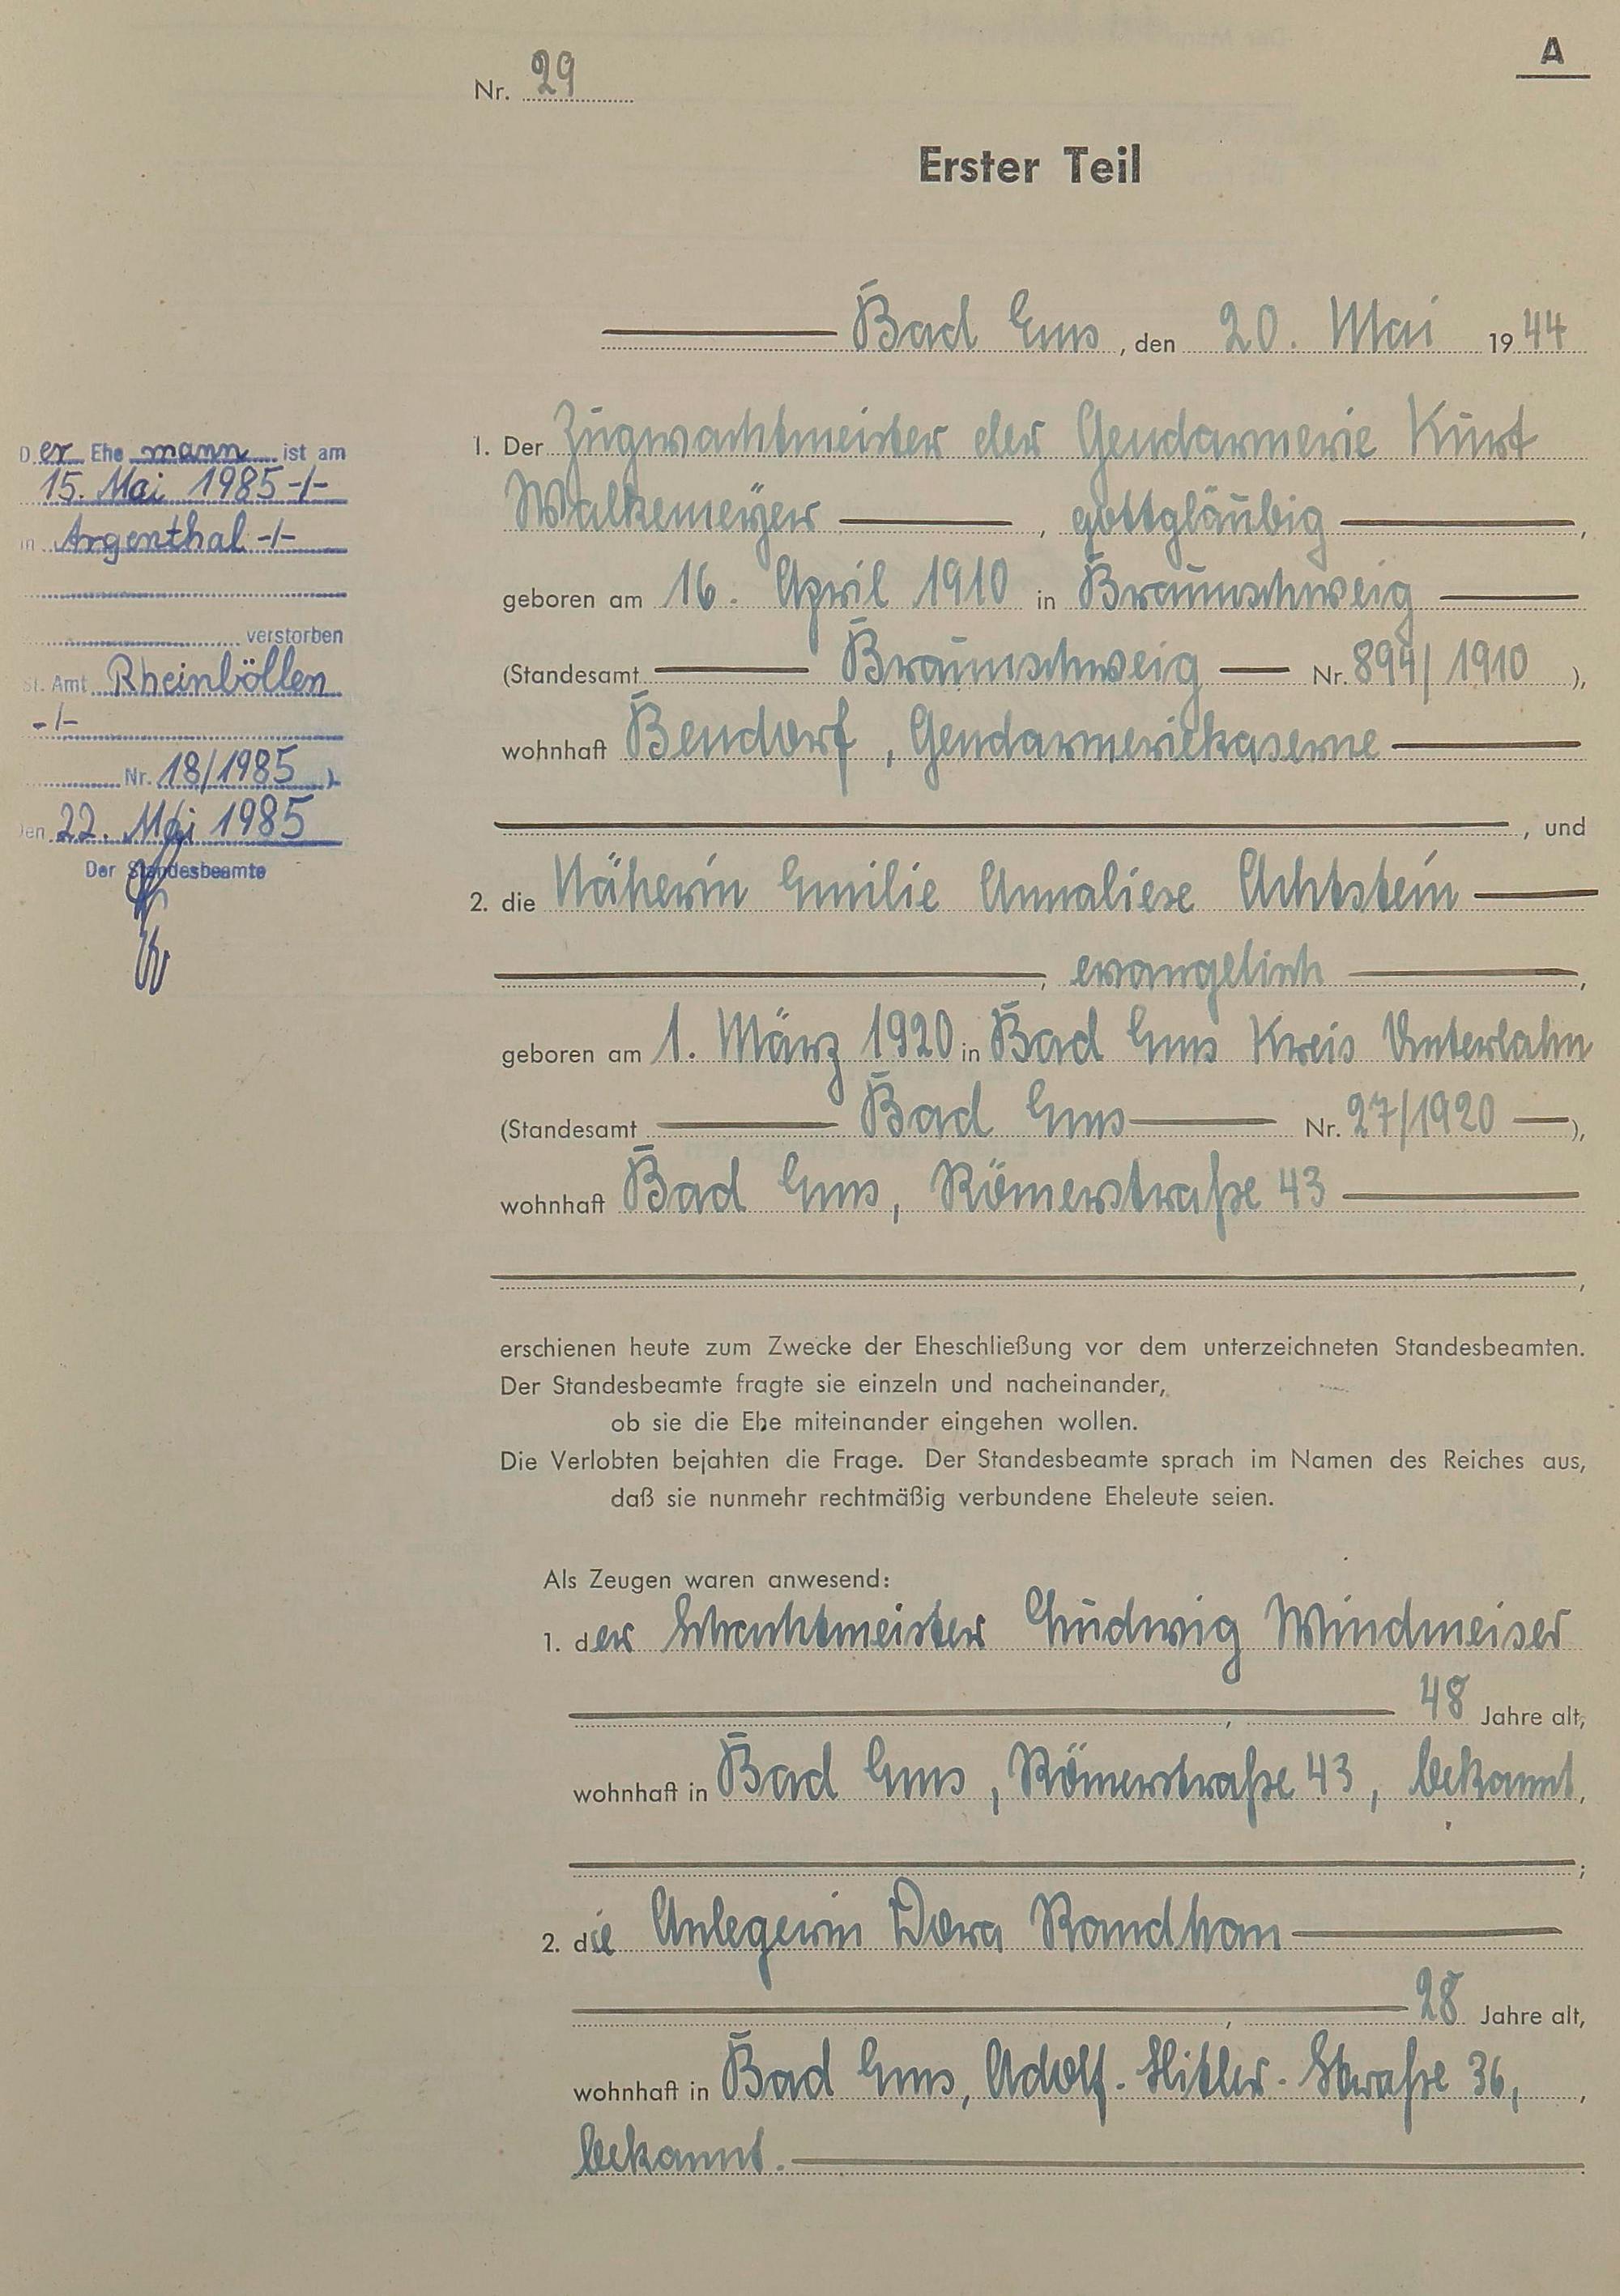 A
Nr. 29
Erster Teil
Bad Ems, den 20. Mai 1944
1. Der Zugwachtmeister der Gendarmerie Kurt
Walkemeyer, gottgläubig,
geboren am 16. April 1910 in Braunschweig
(Standesamt Braunschweig Nr. 894/1910),
wohnhaft Bendorf, Gendarmeriekaserne
, und
2. die Näherin Emilie Annaliese Achtstein
, evangelisch,
geboren am 1. März 1920 in Bad Ems Kreis Unterlahn
(Standesamt Bad Ems Nr. 27/1920),
wohnhaft Bad Ems, Römerstraße 43
,
erschienen heute zum Zwecke der Eheschließung vor dem unterzeichneten Standesbeamten.
Der Standesbeamte fragte sie einzeln und nacheinander,
ob sie die Ehe miteinander eingehen wollen.
Die Verlobten bejahten die Frage. Der Standesbeamte sprach im Namen des Reiches aus,
daß sie nunmehr rechtmäßig verbundene Eheleute seien.
Als Zeugen waren anwesend:
1. der Schachtmeister Ludwig Windmeiser
, 48 Jahre alt,
wohnhaft in Bad Ems, Römerstraße 43, bekannt,
;
2. die Anlegerin Dora
, 28 Jahre alt,
wohnhaft in Bad Ems, Adolf-Hitler-Straße 36,
bekannt.
Der Ehemann ist am
15. Mai 1985 -/-
in Argenthal -/-
verstorben
St. Amt Rheinböllen
-/-
Nr. 18/1985)
den 22. Mai 1985
Der Standesbeamte